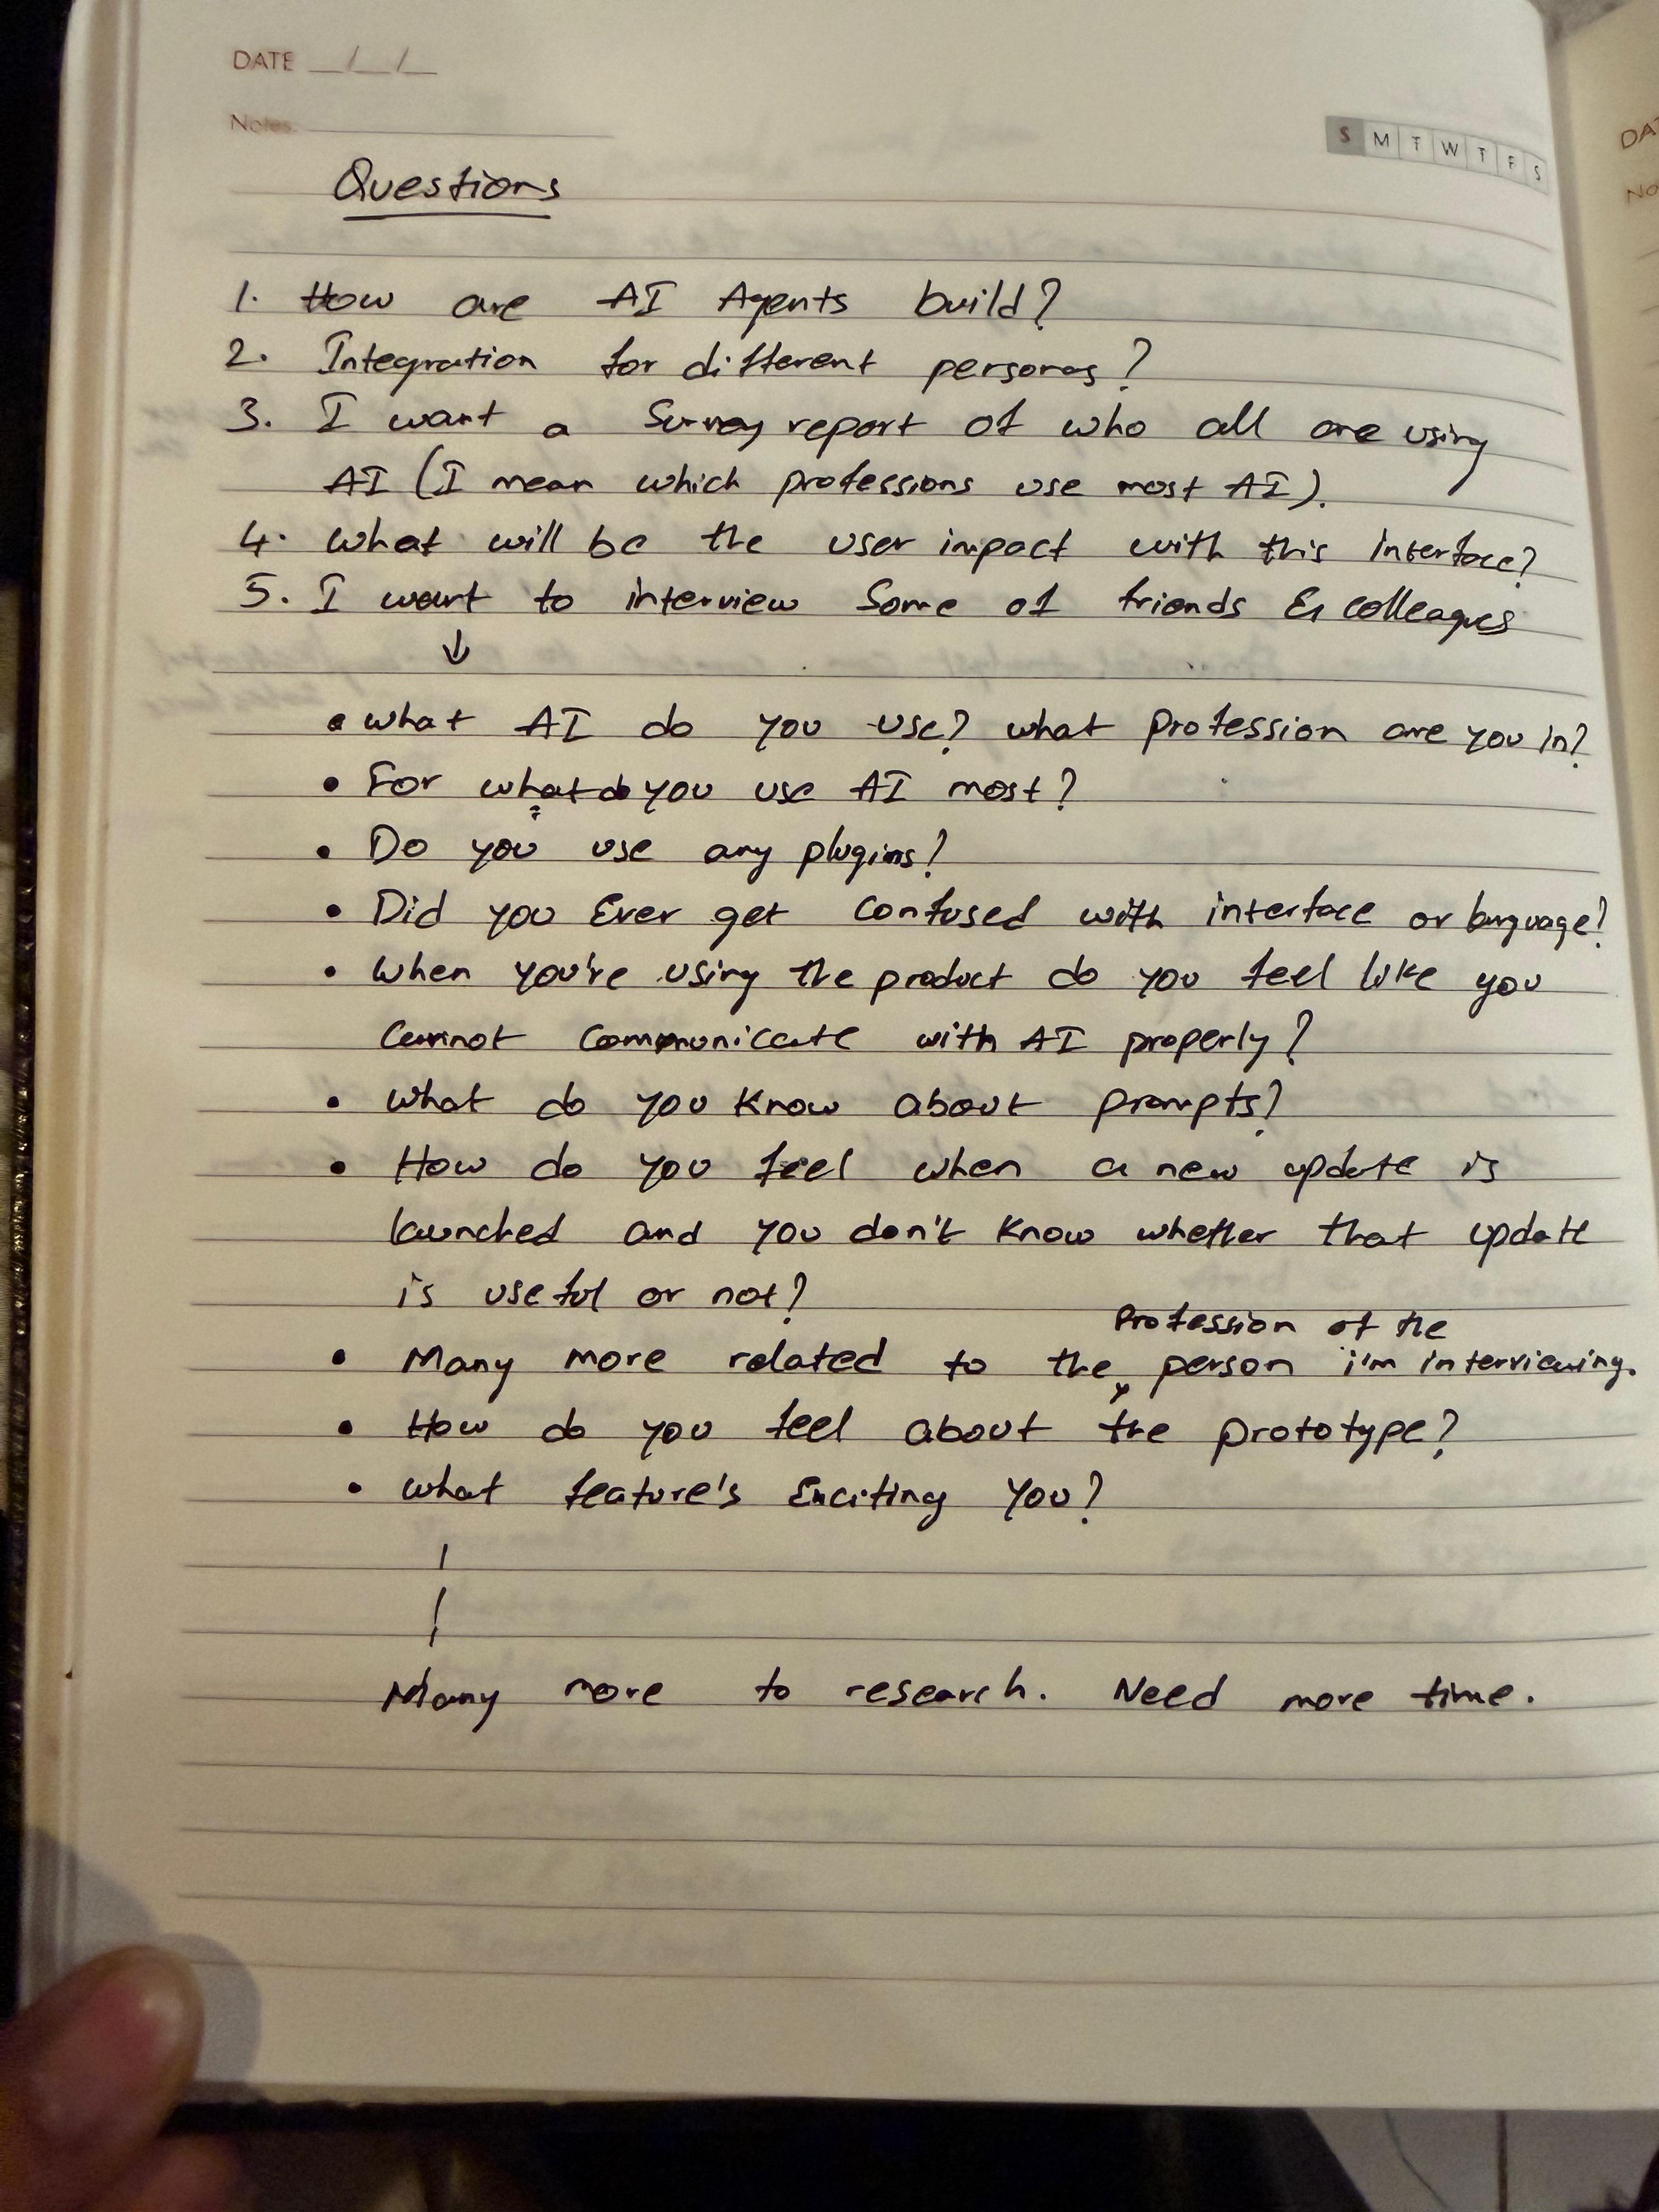 DATE __/__/__
Notes
S M T W T F S
Questions
1. How are AI Agents build?
2. Integration for different personas?
3. I want a Survey report of who all are using
AI (I mean which professions use most AI).
4. What will be the user impact with this interface?
5. I want to interview Some of friends & colleagues
↓
• what AI do you use? what profession are you in?
• For what do you use AI most?
• Do you use any plugins?
• Did you Ever get Confused with interface or language?
• When you're using the product do you feel like you
Cannot Communicate with AI properly?
• What do you Know about prompts?
• How do you feel when a new update is
launched and you don't Know whether that update
is useful or not?
Profession of the
• Many more related to the person i'm interviewing.
• How do you feel about the prototype?
• What feature's Exciting You?
Many more to research. Need more time.
DA
NO